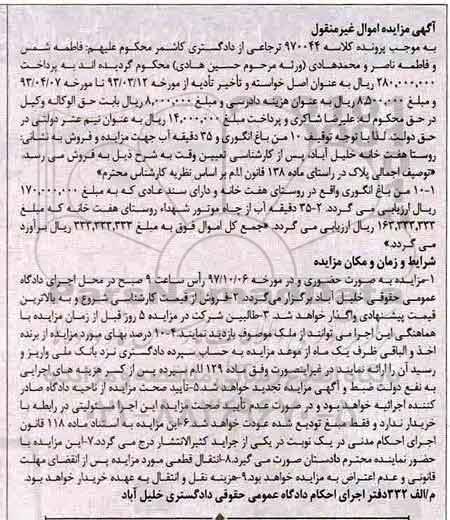 آگهی مزایده اموال غیرمنقول
به موجب پرونده کلاسه ۹۷۰۰۴۴ ترجاعی از دادگستری کاشمر محکوم علیهم: فاطمه شمس
و فاطمه ناصر و محمدهادی (ورثه مرحوم حسین هادی) محکوم گردیده اند به پرداخت
۲۸۰,۰۰۰,۰۰۰ ریال به عنوان اصل خواسته و تأخیر تأدیه از مورخه ۹۳/۰۳/۱۲ تا مورخه ۹۳/۰۴/۰۷
و مبلغ ۸۵۰۰,۰۰۰ ریال به عنوان هزینه دادرسی و مبلغ ۸,۰۰۰,۰۰۰ ریال بابت حق الوکاله وکیل
در حق محکوم له: علیرضا شاکری و پرداخت مبلغ ۱۴,۰۰۰,۰۰۰ ریال به عنوان نیم عشر دولتی در
حق دولت. لذا با توجه توقیف ۱۰ من باغ انگوری و ۳۵ دقیقه آب جهت مزایده و فروش به نشانی:
روستا هفت خانه خلیل آباد، پس از کارشناسی تعیین وقت به شرح ذیل به فروش می رسد.
«توصیف اجمالی پلاک در راستای ماده ۱۳۸ قانون ا.ا.م بر اساس نظریه کارشناس محترم»
۱-۱۰ من باغ انگوری واقع در روستای هفت خانه و دارای سند عادی که به مبلغ ۱۷۰,۰۰۰,۰۰۰
ریال ارزیابی می گردد. ۲-۳۵ دقیقه آب از چاه موتور شهداء روستای هفت خانه که مبلغ
۱۶۳,۳۳۳,۳۳۳ ریال ارزیابی می گردد. «جمع کل اموال فوق به مبلغ ۳۳۳,۳۳۳,۳۳۳ ریال برآورد
می گردد.»
شرایط و زمان و مکان مزایده
۱-مزایده به صورت حضوری و در مورخه ۹۷/۱۰/۰۶ رأس ساعت ۹ صبح در محل اجرای دادگاه
عمومی حقوقی خلیل آباد برگزار می‌گردد. ۲-فروش از قیمت کارشناسی شروع و به بالاترین
قیمت پیشنهادی واگذار خواهد شد. ۳-طالبین شرکت در مزایده ۵ روز قبل از زمان مزایده با
هماهنگی این اجرا می توانند از ملک موصوف بازدید نمایند.۴-۱۰ درصد بهای مورد مزایده از برنده
اخذ و الباقی ظرف یک ماه از موعد مزایده به حساب سپرده دادگستری نزد بانک ملی واریز و
رسید آن را ارائه نمایند در غیراینصورت وفق ماده ۱۲۹ ا.ا.م سپرده پس از کسر هزینه های اجرایی
به نفع دولت ضبط و آگهی مزایده تجدید خواهد شد.۵-تأیید صحت مزایده از ناحیه دادگاه صادر
کننده اجرائیه خواهد بود و در صورت عدم تأیید صحت مزایده این اجرا مسئولیتی در رابطه با
خریدار ندارد و فقط مبلغ تودیع شده عودت خواهد شد.۶-این مزایده به استناد ماده ۱۱۸ قانون
اجرای احکام مدنی در یک نوبت در یکی از جراید کثیرالانتشار درج می گردد.۷-این مزایده با
حضور نماینده محترم دادستان صورت می گیرد.۸-انتقال قطعی مورد مزایده پس از انقضای مهلت
قانونی و عدم اعتراض به مزایده خواهد بود.۹-هزینه نقل و انتقال به عهده خریدار خواهد بود.
م/الف ۳۳۲دفتر اجرای احکام دادگاه عمومی حقوقی دادگستری خلیل آباد